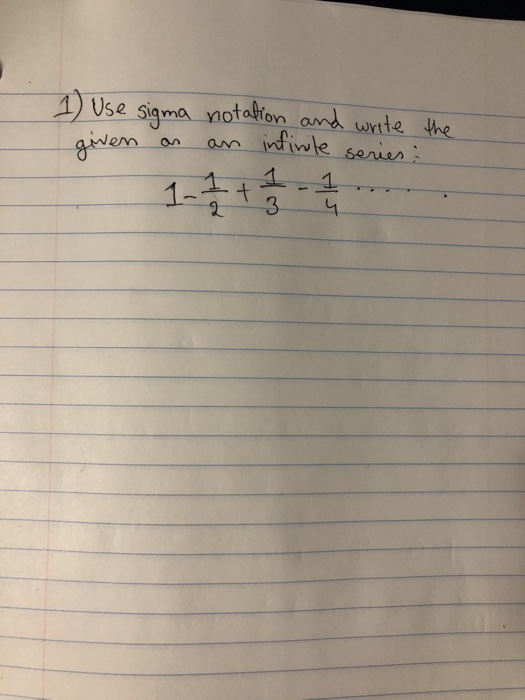 1) Use sigma notation and write the
given as an infinite series:
1 - 1/2 + 1/3 - 1/4 ......